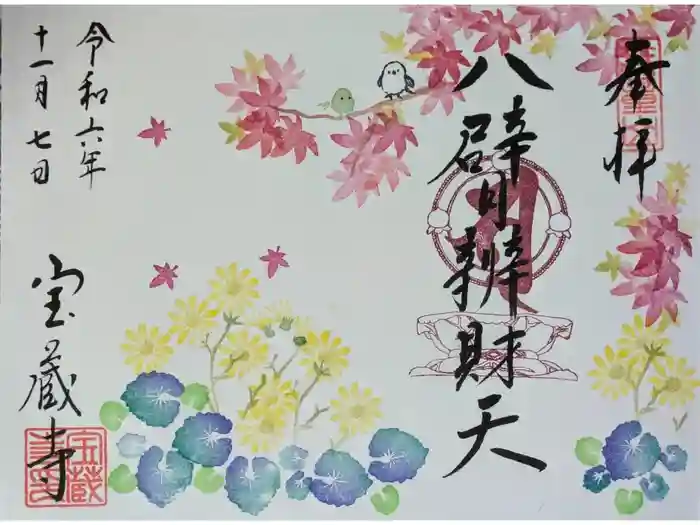 奉拝
八臂辨財天
令和六年
十一月七日
宝蔵寺